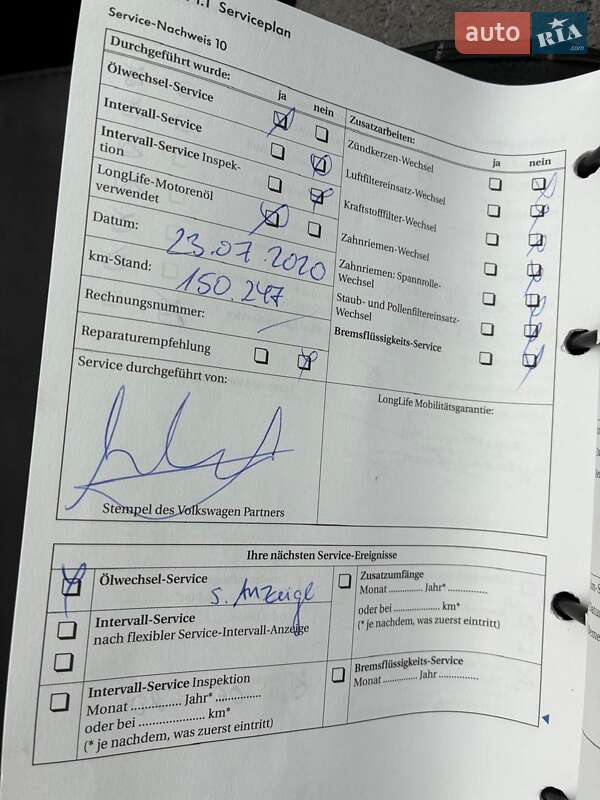 auto RIA.com
1.1 Serviceplan
Service-Nachweis 10
Durchgeführt wurde:
ja nein
Ölwechsel-Service
Intervall-Service
Intervall-Service Inspek-
tion
LongLife-Motorenöl
verwendet
Datum: 23.07.2020
km-Stand: 150.247
Rechnungsnummer:
Reparaturempfehlung
Service durchgeführt von:
Stempel des Volkswagen Partners
Zusatzarbeiten:
ja nein
Zündkerzen-Wechsel
Luftfiltereinsatz-Wechsel
Kraftstofffilter-Wechsel
Zahnriemen-Wechsel
Zahnriemen: Spannrolle-
Wechsel
Staub- und Pollenfiltereinsatz-
Wechsel
Bremsflüssigkeits-Service
LongLife Mobilitätsgarantie:
Ihre nächsten Service-Ereignisse
Ölwechsel-Service
s. Anzeige
Intervall-Service
nach flexibler Service-Intervall-Anzeige
Intervall-Service Inspektion
Monat ............... Jahr* ...............
oder bei ..................... km*
(* je nachdem, was zuerst eintritt)
Zusatzumfänge
Monat ............ Jahr* ..............
oder bei ................... km*
(* je nachdem, was zuerst eintritt)
Bremsflüssigkeits-Service
Monat ............ Jahr ..............